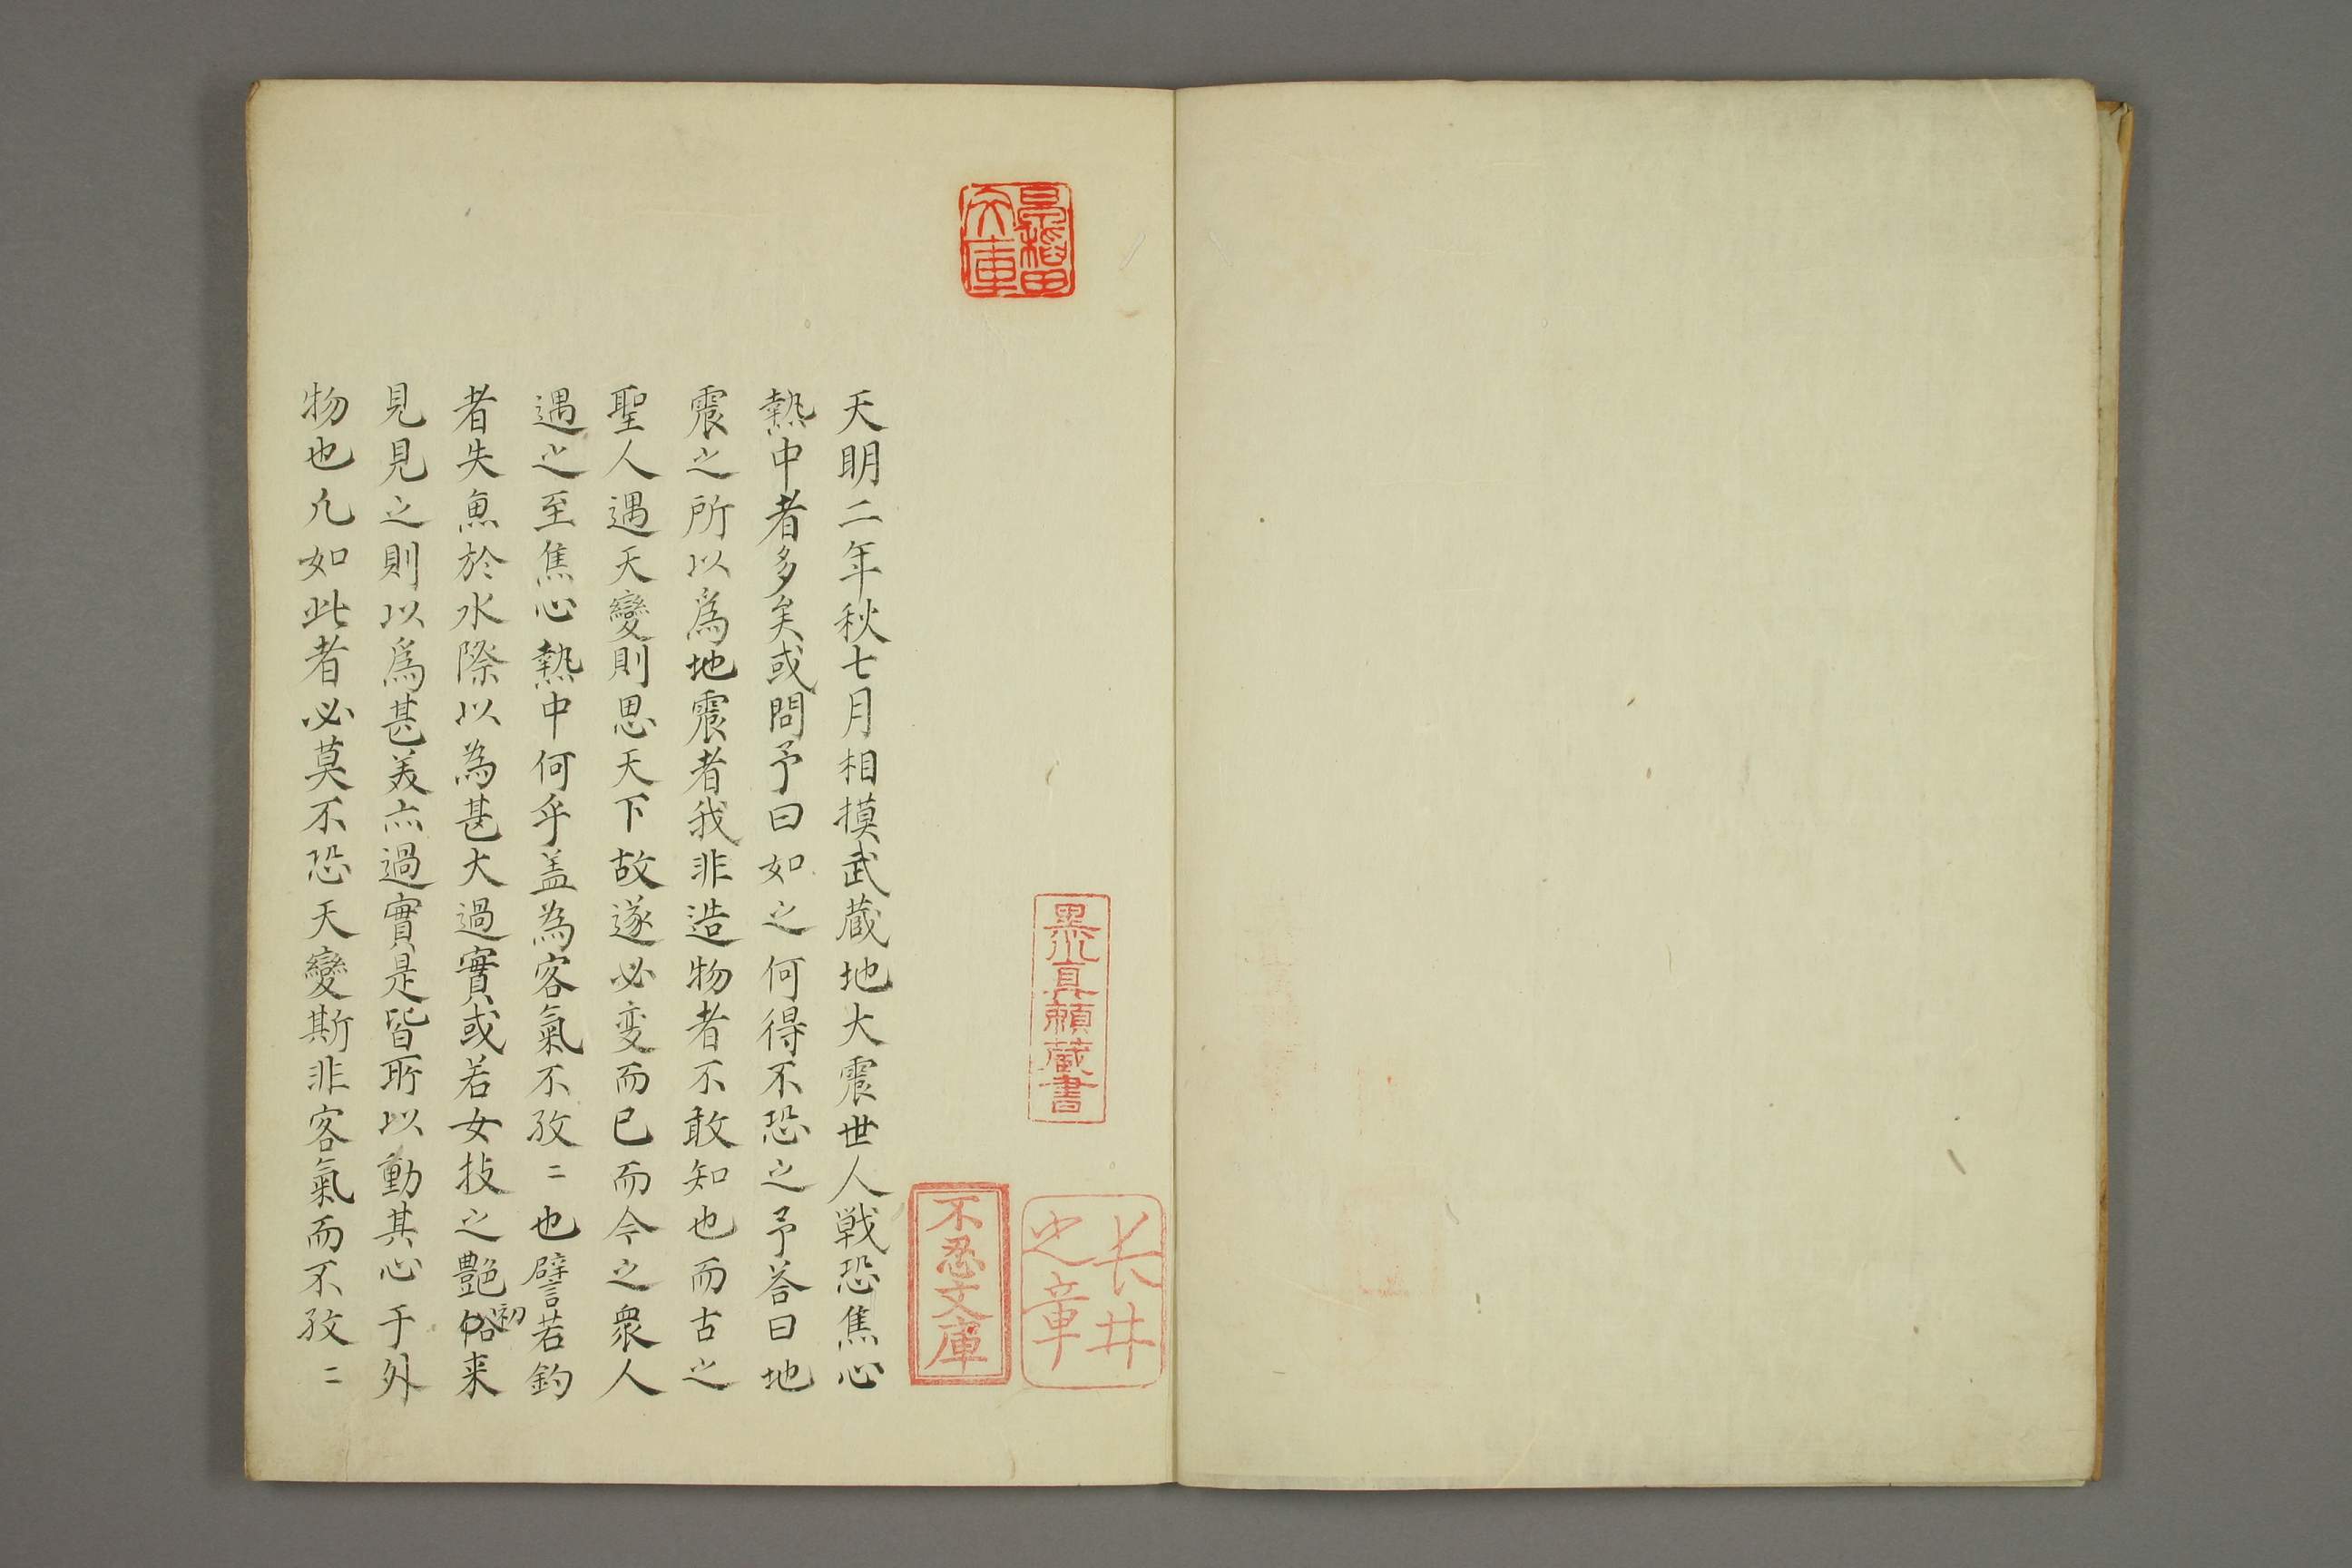 早稲田文庫
黒川真頼蔵書
長井之章
不忍文庫
天明二年秋七月相摸武蔵地大震世人戦恐焦心
熱中者多矣或問予曰如之何得不恐之予荅曰地
震之所以為地震者我非造物者不敢知也而古之
聖人遇天變則思天下故遂必変而已而今之衆人
遇之至焦心熱中何乎盖為客氣不孜〻也譬若釣
者失魚於水際以為甚大過實或若女技之艶初来
見見之則以為甚美亦過實是皆所以動其心于外
物也凡如此者必莫不恐天變斯非客氣而不孜〻